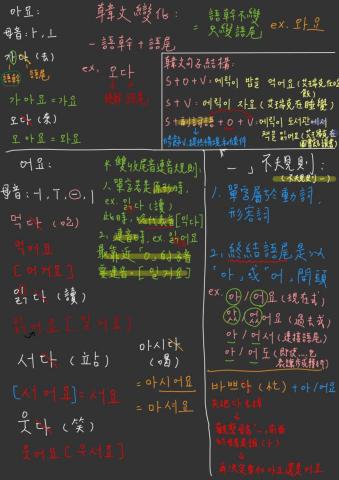 아요:
母音:ㅏ,ㅗ
가다 (去)
語幹 語尾
가아요=가요
오다 (來)
오아요=와요
韓文變化:
-語幹+語尾
=語幹不變
只變語尾
ex. 와요
ex. 오다
語幹 語尾
韓文句子結構:
S+O+V: 에릭이 밥을 먹어요 (艾瑞克在吃飯)
S+V: 에릭이 자요 (艾瑞克在睡覺)
에릭이 도서관에서
책을 읽어요
어요:
母音:ㅓ,ㅜ,ㅡ,ㅣ
먹다 (吃)
먹어요
[머거요]
읽다 (讀)
읽어요 [일거요]
서다 (站)
[서어요]=서요
웃다 (笑)
웃어요 [우서요]
*雙收尾音連音規則:
1,單字若是原形時,
ex. 읽다 (讀)
[익다]
2,連音時, ex. 읽어요
[일거요]
마시다
(喝)
=마시어요
=마셔요
"ㅡ"不規則:
(不規則ㅡ)
1,單字屬於動詞,
形容詞
2,終結語尾是以
"아"或"어"開頭
ex.
아/어요 (現在式)
았/었어요 (過去式)
아/어서 (連接語尾)
아/어도
바쁘다 (忙) +아/어요